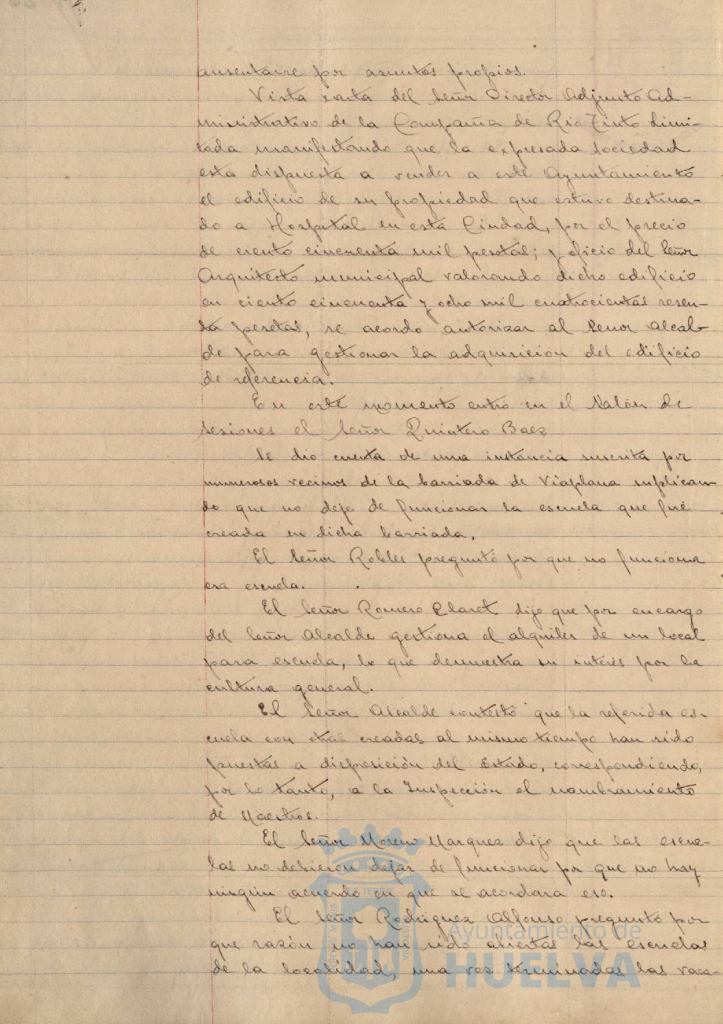 ausentarse por asuntos propios.
Vista carta del Señor Director Adjunto Ad-
ministrativo de la Compañia de Rio Tinto Limi-
tada manifestando que la expresada sociedad
está dispuesta a vender a este Ayuntamiento
el edificio de su propiedad que estuvo destina-
do a Hospital en esta Ciudad, por el precio
de ciento cincuenta mil pesetas; y oficio del Señor
Arquitecto municipal valorando dicho edificio
en ciento cincuenta y ocho mil cuatrocientas sesen-
ta pesetas, se acordo autorizar al Señor Alcal-
de para gestionar la adquisicion del edificio
de referencia.
En este momento entro en el Salón de
Sesiones el Señor Quintero Baez
Se dio cuenta de una instancia suscrita por
numerosos vecinos de la barriada de Viaplana suplican-
do que no deje de funcionar la escuela que fué
creada en dicha barriada.
El Señor Robles preguntó por que no funciona
esa escuela.
El Señor Romero Claret dijo que por encargo
del Señor Alcalde gestiona el alquiler de un local
para escuela, lo que demuestra su interés por la
cultura general.
El Señor Alcalde contestó que la referida es-
cuela con otras creadas al mismo tiempo han sido
puestas a disposición del Estado, correspondiendo,
por lo tanto, a la Inspección el nombramiento
de Maestros.
El Señor Moreno Marquez dijo que las escue-
las no debieron dejar de funcionar por que no hay
ningún acuerdo en que se acordara eso.
El Señor Rodriguez Alfonso preguntó por
que razón no han sido abiertas las escuelas
de la localidad, una vez terminadas las vaca-
Ayuntamiento de
HUELVA